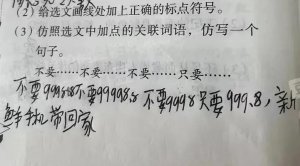 (2) 给选文画线处加上正确的标点符号。
(3) 仿照选文中加点的关联词语，仿写一个
句子。
不要……不要……不要……只要……
不要9998.8不要99998.8 不要999.8只要999.8，新
鲜手机带回家